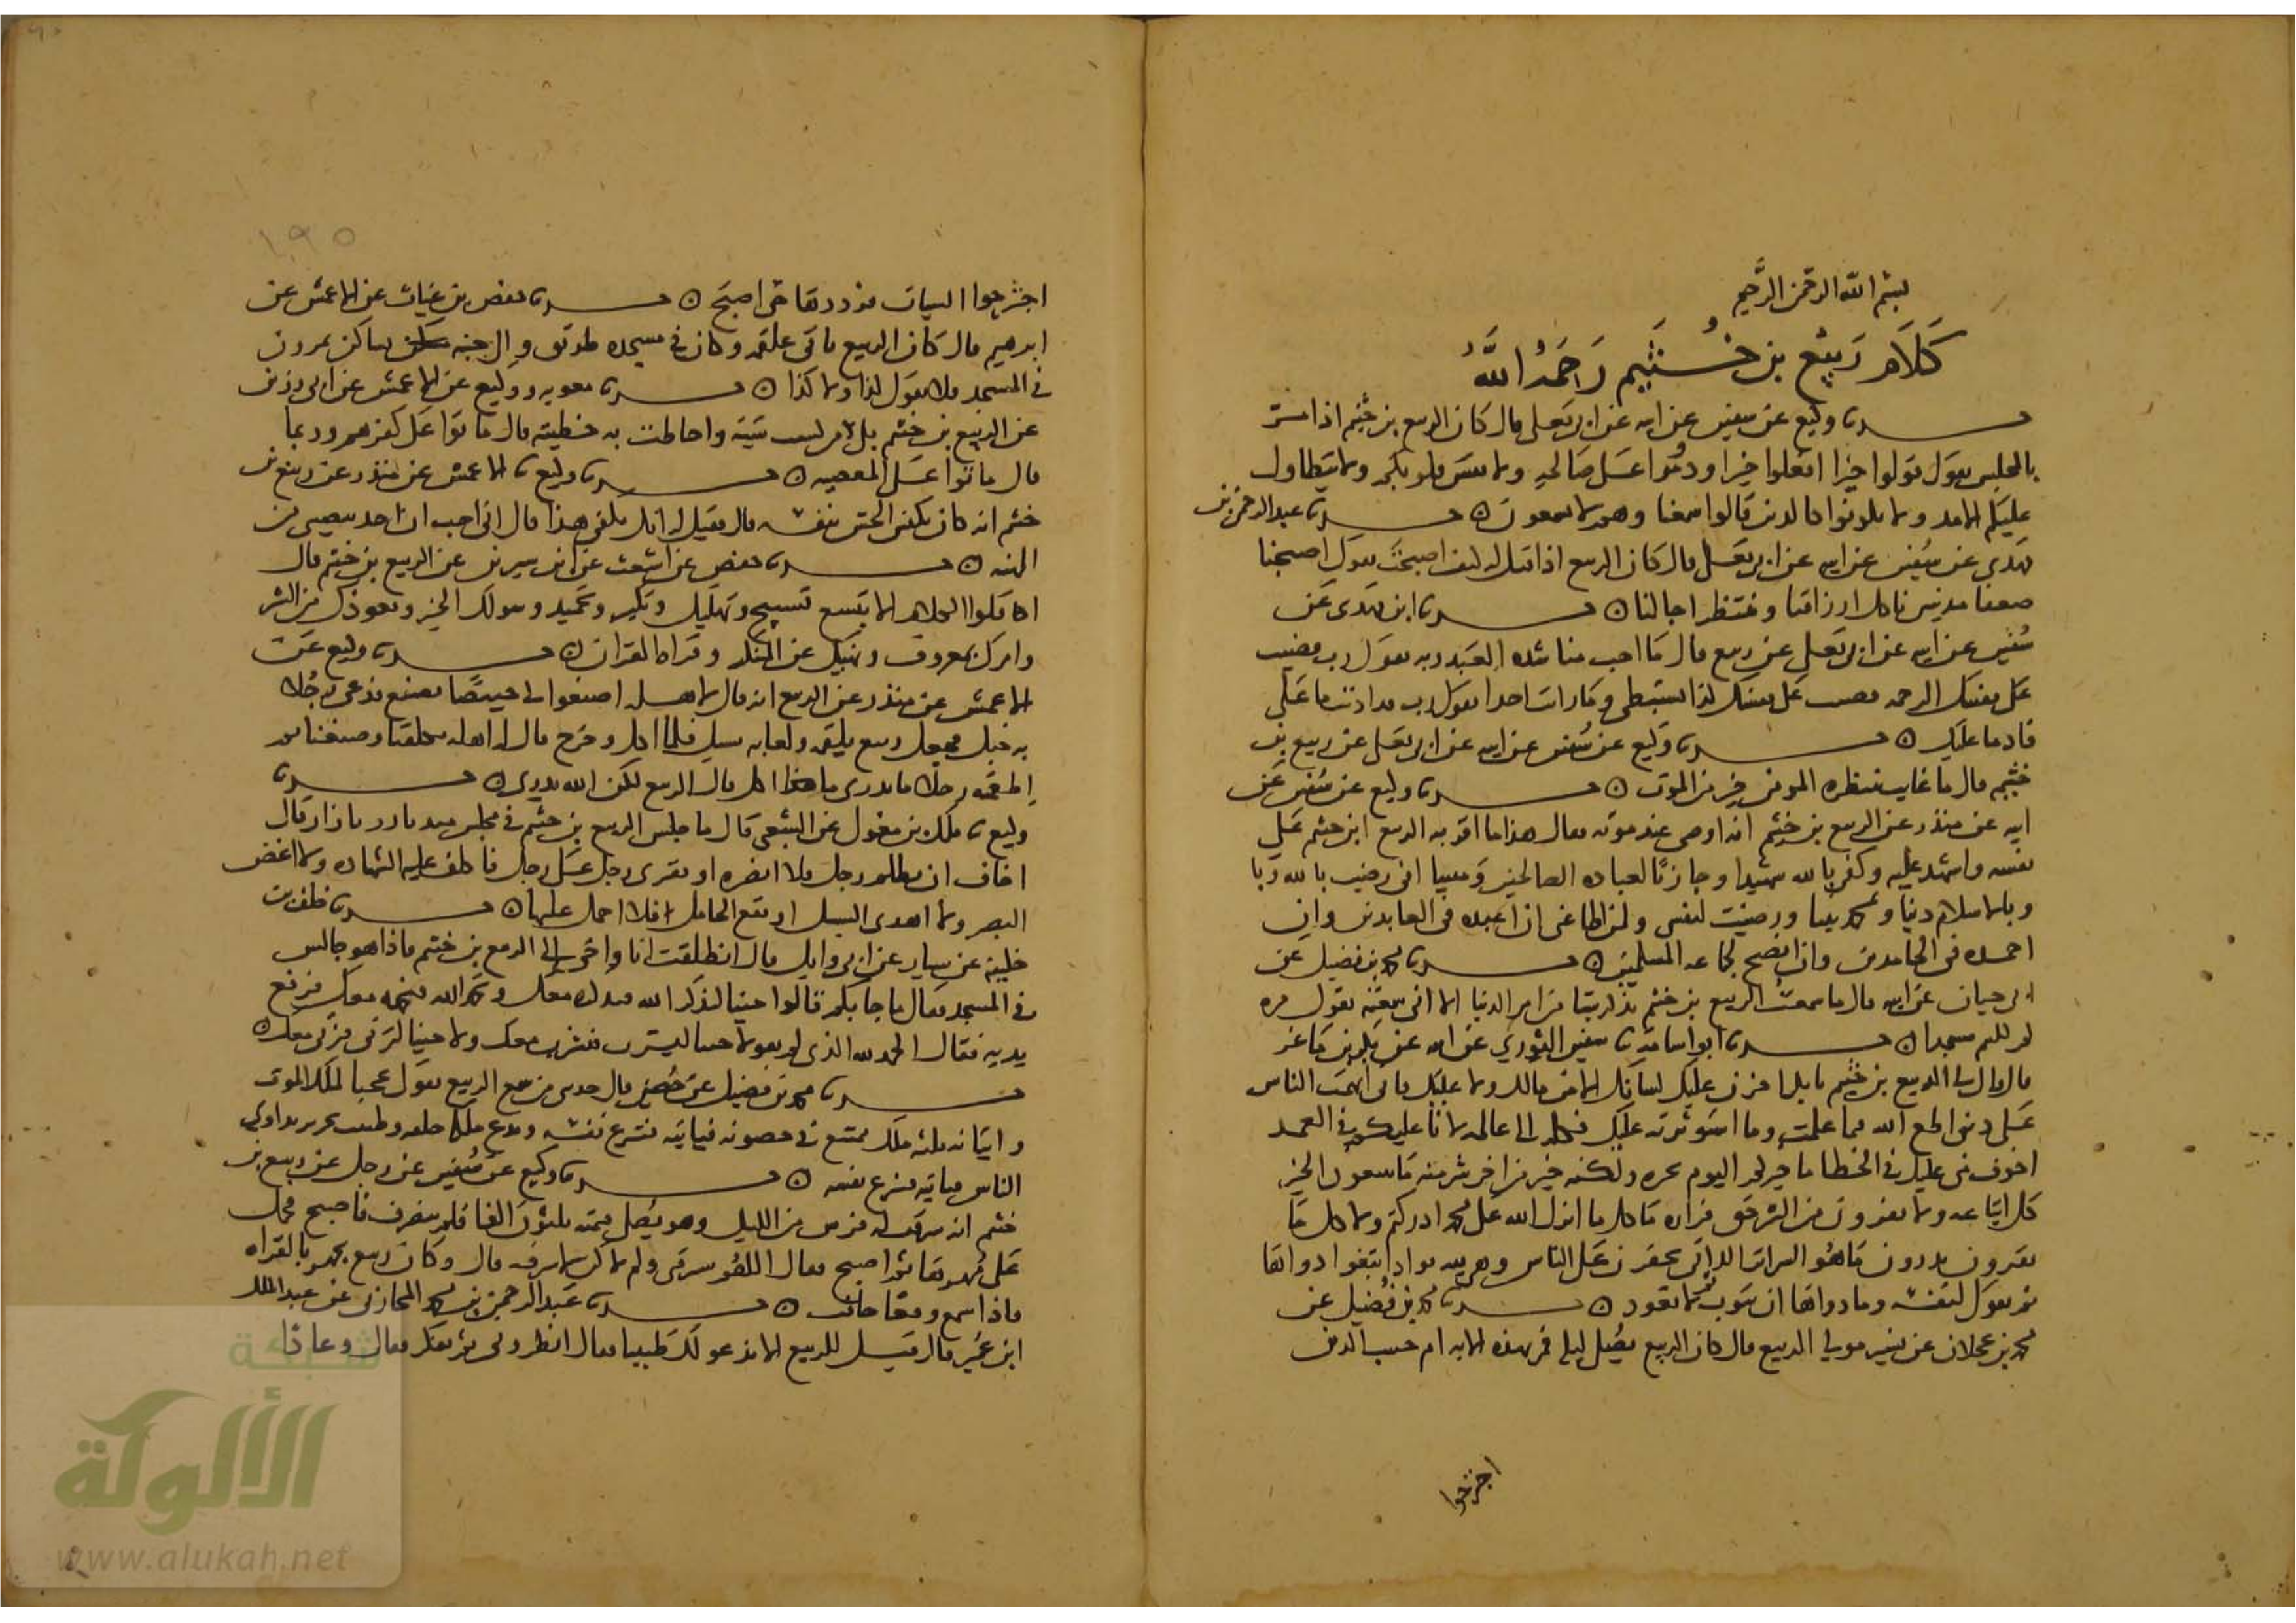 بسم الله الرحمن الرحيم
كلام ربيع بن خثيم رحمه الله
حدثنا وكيع عن سفين عن ابيه عن ابي يعلى قال كان الربيع بن خثيم اذا مر
بالمجلس يقول قولوا خيرا افعلوا خيرا ودوموا على صالحه ولا تقس قلوبكم ولا يتطاول
عليكم الامد ولا تكونوا كالذين قالوا سمعنا وهم لا يسمعون حدثنا عبد الرحمن بن
مهدي عن سفين عن ابيه عن ابي يعلى قال كان الربيع اذا قيل له كيف اصبحت يقول اصبحنا
ضعفا مذنبين ناكل ارزاقنا وننتظر اجالنا حدثنا ابن مهدي عن
سفين عن ابيه عن ابي يعلى عن ربيع قال ما احب مناشده العبد ربه يقول رب قضيت
على نفسك الرحمه قضيت على نفسك كذا يستبطى وما رايت احدا يقول رب قد اديت ما على
فاد ما عليك حدثنا وكيع عن سفين عن ابيه عن ابي يعلى عن ربيع بن
خثيم قال ما غايب ينتظره المومن خير من الموت حدثنا وكيع عن سفين عن
ابيه عن منذر عن الربيع بن خثيم انه اوصى عند موته فقال هذا ما اقر به الربيع ابن خثيم على
نفسه واشهد عليه وكفى بالله شهيدا وجازيا لعباده الصالحين ومثيبا اني رضيت بالله ربا
وبالاسلام دينا وبمحمد نبيا ورضيت لنفسي ولمن اطاعني ان اعبده في العابدين وان
احمده في الحامدين وان انصح لجماعه المسلمين حدثنا محمد بن فضيل عن
ابي حيان عن ابيه قال ما سمعت الربيع بن خثيم يذكر شيا من امر الدنيا الا اني سمعته يقول مره
كم للتيم مسجدا حدثنا ابو اسامة سفين الثوري عن ابيه عن بكر بن ماعز
قال قال لي الربيع بن خثيم يا بكر اخزن عليك لسانك الا من مالك ولا عليك فاني اتهمت الناس
على ديني اطع الله فيما علمت وما استوثر به عليك فكله الى عالمه لانا عليكم في العمد
اخوف مني عليكم في الخطا ما خيركم اليوم بخيره ولكنه خير من اخر شر منه ما تتبعون الخير
كل اتباعه ولا تفرون من الشر حق فراره ما كل ما انزل الله على محمد ادركتم ولا كل ما
تقرون تدرون ما هو السراير اللاتي يخفين على الناس وهي لله بواد ابتغوا دواها
ثم يقول لنفسه وما دواها ان تتوب ثم لا تعود حدثنا محمد بن فضيل عن
محمد بن عجلان عن نسير مولى الربيع قال كان الربيع يصلي ليله فمر بهذه الايه ام حسب الذين
اجترحوا
١٩٥
اجترحوا السيات فرددها حتى اصبح حدثنا حفص بن غياث عن الاعمش عن
ابرهيم قال كان الربيع ياتي علقمه وكان في مسجده طريق والى جنبه نساكن يمرون
في المسجد فلا يقول كذا ولا كذا حدثنا معويه ووكيع عن الاعمش عن ابي رزين
عن الربيع بن خثيم بلى من كسب سيئة واحاطت به خطيته قال ماتوا على كفرهم وربما
قال ماتوا على المعصيه حدثنا وكيع الاعمش عن منذر عن ربيع بن
خثيم انه كان يكنس الحش بنفسه قال فقيل له انك تكفى هذا قال اني احب ان اخذ بنصيبي من
المهنه حدثنا حفص عن اشعث عن ابن سيرين عن الربيع بن خثيم قال
اقلوا الكلام الا بتسع تسبيح وتهليل وتكبير وتحميد وسوالك الخير وتعوذك من الشر
وامرك بمعروف ونهيك عن المنكر وقراه القران حدثنا وكيع عن
الاعمش عن منذر عن الربيع انه قال لاهله اصنعوا لي خبيصا فصنع فدعى رجلا
به خبل فجعل ربيع يلقمه ولعابه يسيل فلما اكل وخرج قال له اهله تكلفنا وصنعنا ثم
اطعمته رجلا ما يدري ما اكل قال الربيع لكن الله يدري حدثنا
وكيع ملك بن مغول عن الشعبي قال ما جلس الربيع بن خثيم في مجلس منذ تازر بازار قال
اخاف ان يظلم رجل فلا انصره او يفترى رجل على رجل فاكلف عليه الشهاده ولا اغض
البصر ولا اهدى السبيل او يقع الحامل فلا احمل عليها حدثنا خلف بن
خليفة عن سيار عن ابي وايل قال انطلقت انا واخي الى الربيع بن خثيم فاذا هو جالس
في المسجد فقال ما جا بكم قالوا جينا لتذكر الله فنذكره معك وتحمد الله فنحمده معك فرفع
يديه فقال الحمد لله الذي لم تقولا جينا لتشرب فنشرب معك ولا جينا لتزني فنزني معك
حدثنا محمد بن فضيل عن حصين قال حدثني من سمع الربيع يقول عجبا لملك الموت
واتيانه ثلثه ملك ممتنع في حصونه فياتيه فينزع نفسه ويدع ملكه خلفه وطبيب نحرير يداوي
الناس فياتيه فينزع نفسه حدثنا وكيع عن سفين عن رجل عن ربيع بن
خثيم انه سرقت له فرس من الليل وهو يصلي قيمته ثلثون الفا فلم ينصرف فاصبح فحمل
على مهرها ثم اصبح فقال اللهم سرقني ولم اكن لاسرقه قال وكان ربيع يجهر بالقراه
فاذا سمع وقعا خافت حدثنا عبد الرحمن بن محمد المحاربي عن عبد الملك
ابن عمير قال قيل للربيع الا ندعو لك طبيبا فقال انظروني ثم تفكر فقال وعادا
شبكة
الألوكة
www.alukah.net